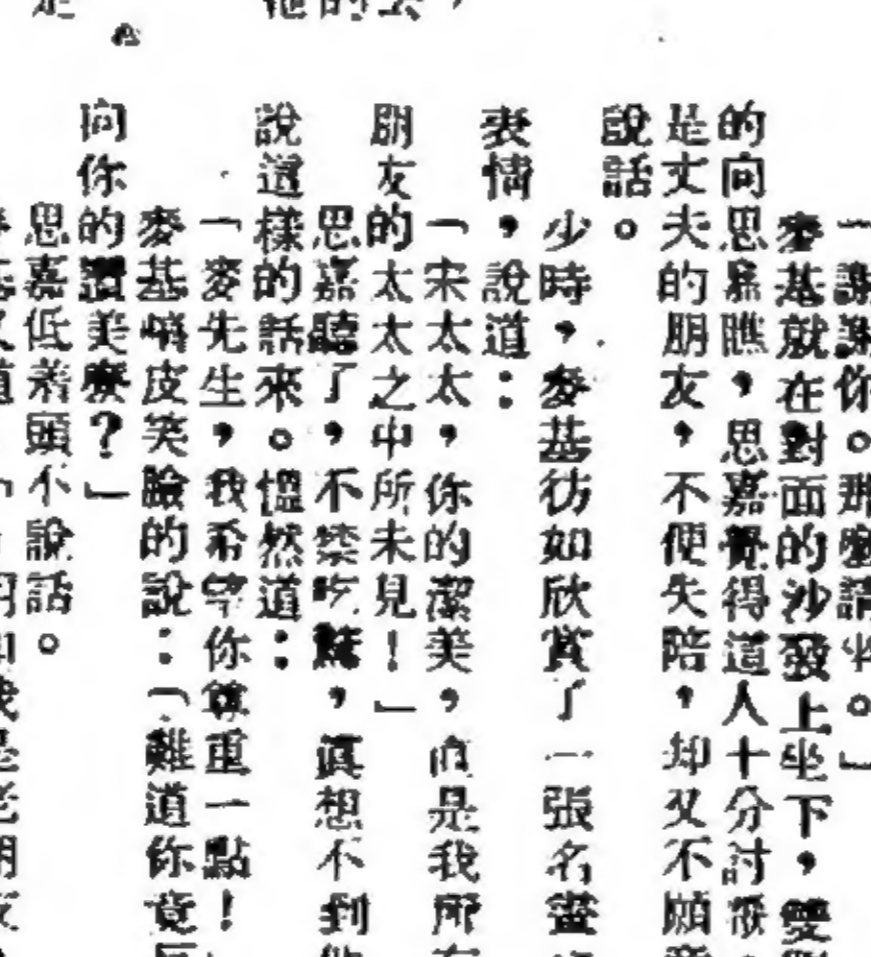 「謝謝你。那麼請坐。」
麥基就在對面的沙發上坐下，雙
的向思嘉瞧，思嘉覺得這人十分討厭，
是丈夫的朋友，不便失陪，却又不願意
說話。
少時，麥基彷如欣賞了一張名畫
表情，說道：
「宋太太，你的潔美，直是我所有
朋友的太太之中所未見！」
思嘉聽了，不禁吃驚，眞想不到他
說這樣的話來。慍然道：
「麥先生，我希望你尊重一點！
麥基嘻皮笑臉的說：「難道你竟反
向你的讚美麼？」
思嘉低着頭不說話。